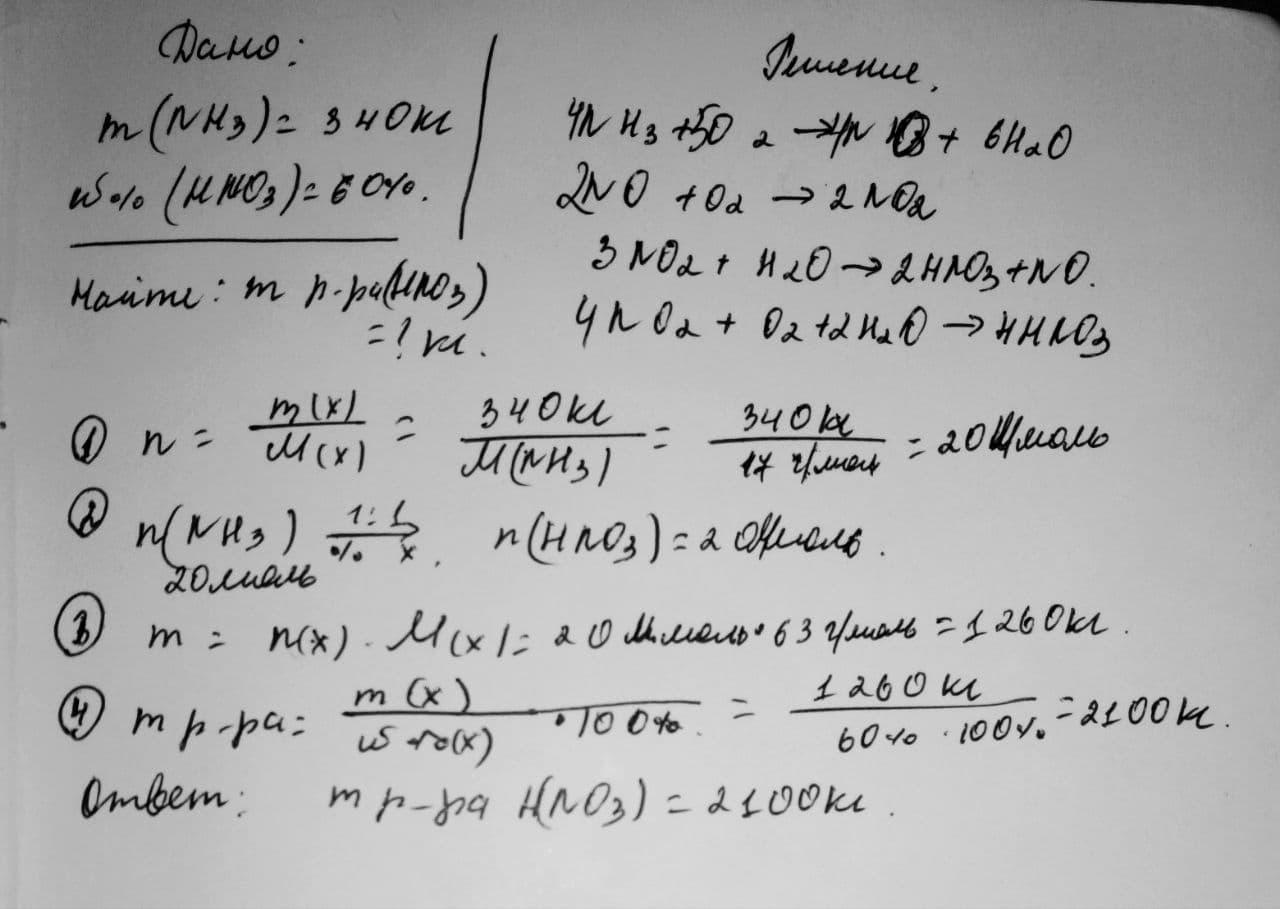 Дано:
m(NH3)= 340кг
ω% (HNO3)= 60%.
Найти: m р-ра(HNO3)
=? кг.
Решение.
4NH3 +5O2 → 4N + 6H2O
2NO + O2 → 2NO2
3NO2 + H2O → 2HNO3+NO.
4NO2 + O2 +2H2O → 4HNO3
① n = m(x)/M(x) = 340кг/M(NH3) = 340кг/17 г/моль = 20 моль
② n(NH3) 1:1 x. n(HNO3) = 20 моль.
20 моль
③ m = n(x) · M(x) = 20 моль · 63 г/моль = 1260кг.
④ m р-ра = m(x)/ω (x) · 100% = 1260кг/60% · 100% = 2100кг.
Ответ: m р-ра H(NO3) = 2100кг.